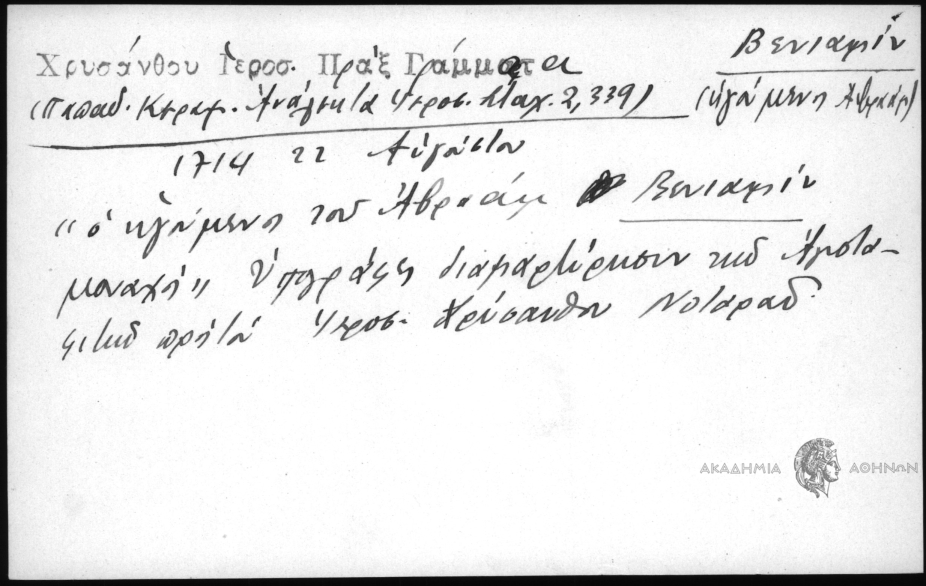 Χρυσάνθου Ἱεροσ. Πράξ Γράμματα
Βενιαμίν
(Παπαδ. Κεραμ. Ἀνάλεκτα Ἱεροσ. Σταχ. 2, 339)
(ἡγούμενος Ἀβραάμ)
1714 22 Αὐγούστου
"ὁ ἡγούμενος τοῦ Ἀβραάμ Βενιαμίν
μοναχός" Ὑπογράφει διαμαρτύρησιν τοῦ Ἁγιοτα-
φιτικοῦ Ἱεροσ. Χρύσανθου Νοταρᾶ
ΑΚΑΔΗΜΙΑ ΑΘΗΝΩΝ